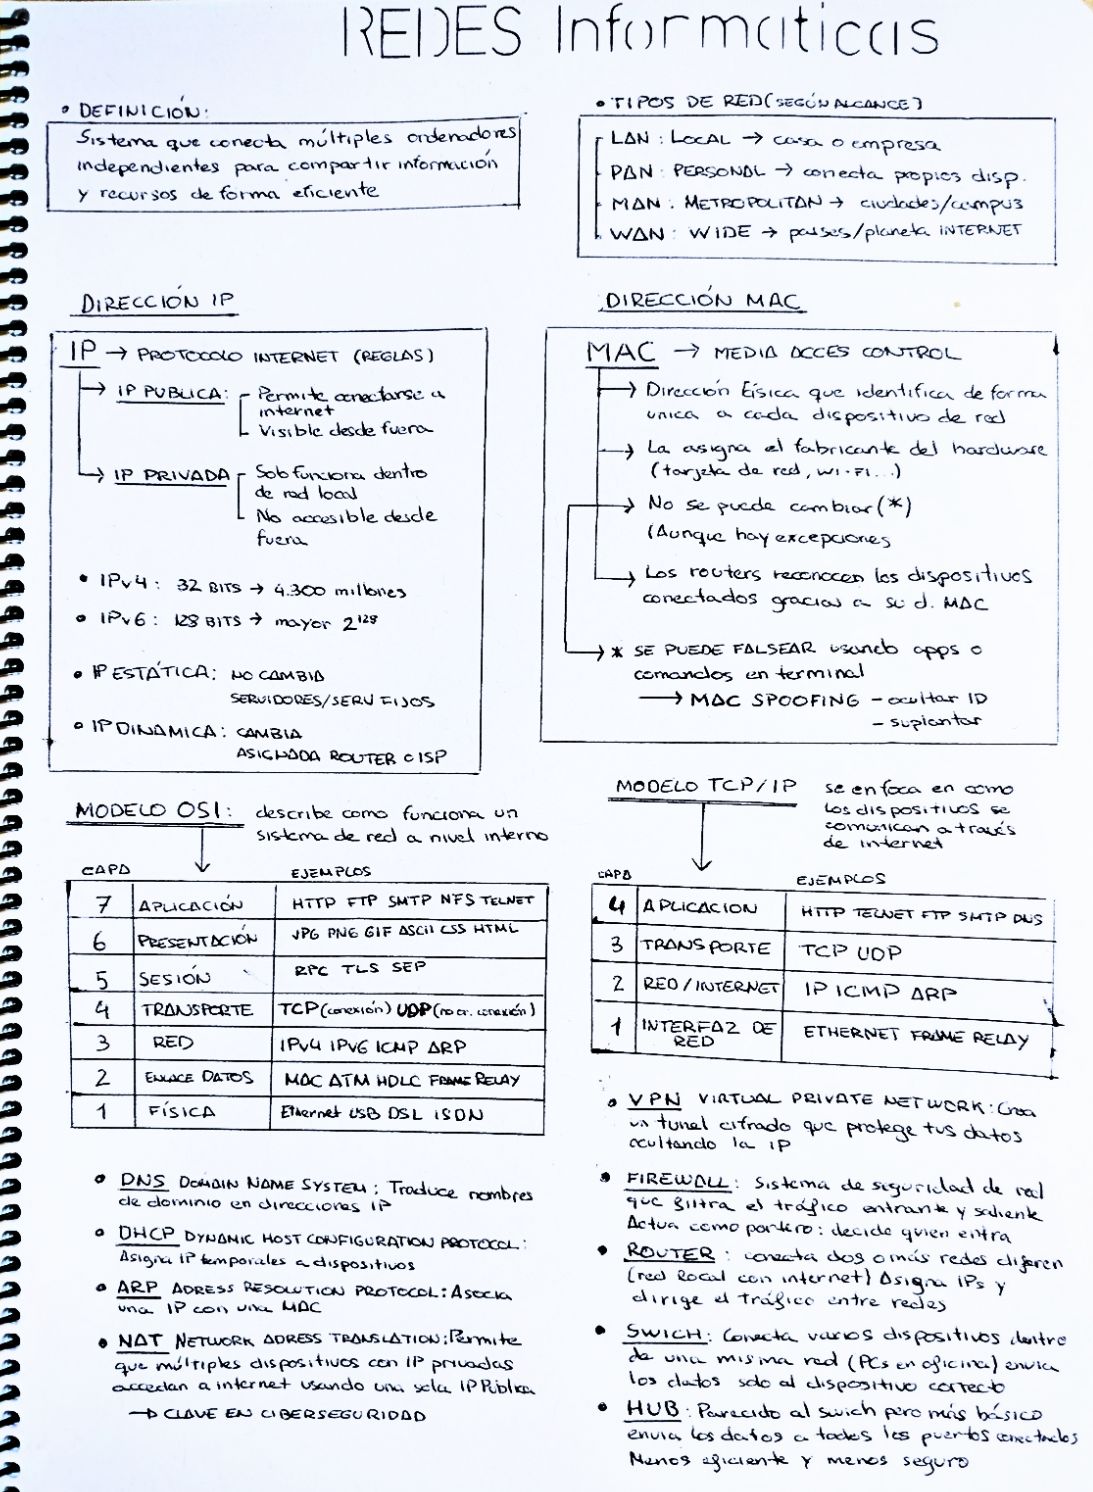 REDES Informaticas
• DEFINICIÓN:
Sistema que conecta múltiples ordenadores
independientes para compartir información
y recursos de forma eficiente
• TIPOS DE RED (SEGÚN ALCANCE)
LAN : LOCAL → casa o empresa
PAN : PERSONAL → conecta propios disp.
MAN : METROPOLITAN → ciudades/campus
WAN : WIDE → paises/planeta INTERNET
DIRECCIÓN IP
IP → PROTOCOLO INTERNET (REGLAS)
→ IP PUBLICA: Permite conectarse a
internet
Visible desde fuera
→ IP PRIVADA Solo funciona dentro
de red local
No accesible desde
fuera
• IPv4 : 32 BITS → 4.300 millones
• IPv6 : 128 BITS → mayor 2¹²⁸
• IP ESTÁTICA: NO CAMBIA
SERVIDORES/SERV FIJOS
• IP DINAMICA: CAMBIA
ASIGNADA ROUTER O ISP
DIRECCIÓN MAC
MAC → MEDIA ACCES CONTROL
→ Dirección física que identifica de forma
unica a cada dispositivo de red
→ La asigna el fabricante del hardware
(tarjeta de red, WI-FI...)
→ No se puede cambiar (*)
(Aunque hay excepciones
→ Los routers reconocen los dispositivos
conectados gracias a su d. MAC
→ * SE PUEDE FALSEAR usando apps o
comandos en terminal
→ MAC SPOOFING - ocultar ID
- suplantar
MODELO OSI: describe como funciona un
sistema de red a nivel interno
CAPA EJEMPLOS
7 APLICACIÓN HTTP FTP SMTP NFS TELNET
6 PRESENTACIÓN JPG PNG GIF ASCII CSS HTML
5 SESIÓN RPC TLS SEP
4 TRANSPORTE TCP (conexión) UDP (no cr. conexión)
3 RED IPV4 IPV6 ICMP ARP
2 ENLACE DATOS MAC ATM HDLC FRAME RELAY
1 FÍSICA Ethernet USB DSL ISDN
• DNS DOMAIN NAME SYSTEM : Traduce nombres
de dominio en direcciones IP
• DHCP DYNAMIC HOST CONFIGURATION PROTOCOL:
Asigna IP temporales a dispositivos
• ARP ADRESS RESOLUTION PROTOCOL: Asocia
una IP con una MAC
• NAT NETWORK ADRESS TRANSLATION: Permite
que múltiples dispositivos con IP privadas
accedan a internet usando una sola IP Pública
→ CLAVE EN CIBERSEGURIDAD
MODELO TCP/IP se enfoca en como
los dispositivos se
comunican a través
de internet
CAPA EJEMPLOS
4 APLICACION HTTP TELNET FTP SMTP DNS
3 TRANSPORTE TCP UDP
2 RED/INTERNET IP ICMP ARP
1 INTERFAZ DE RED ETHERNET FRAME RELAY
• VPN VIRTUAL PRIVATE NETWORK: Crea
un tunel cifrado que protege tus datos
ocultando la IP
• FIREWALL: Sistema de seguridad de red
que filtra el tráfico entrante y saliente
Actua como portero: decide quien entra
• ROUTER : conecta dos o más redes diferen
(red local con internet) Asigna IPs y
dirige el tráfico entre redes
• SWICH: Conecta varios dispositivos dentro
de una misma red (PCs en oficina) envia
los datos solo al dispositivo correcto
• HUB: Parecido al swich pero más básico
envia los datos a todos los puertos conectados
Menos eficiente y menos seguro